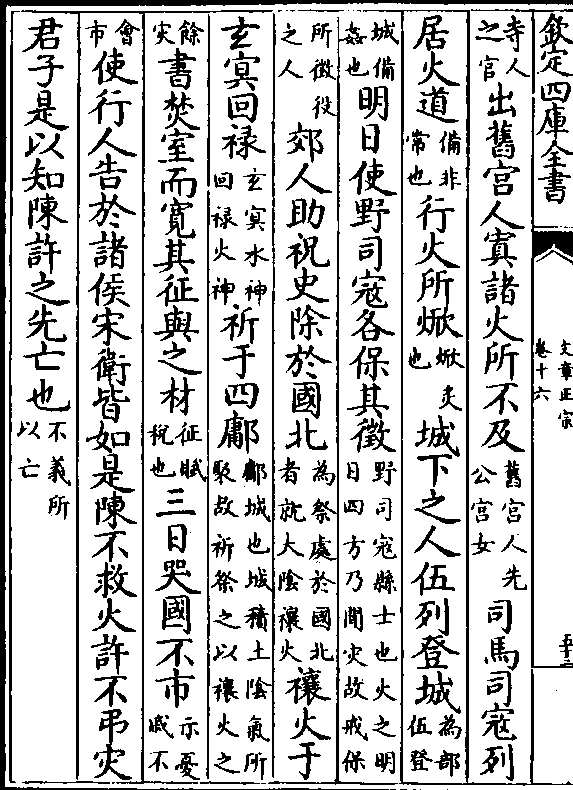 欽定四庫全書
文章正宗
卷十六
寺人之官出舊宮人寘諸火所不及舊宮人先公宮女司馬司寇列
居火道備非常也行火所焮焮炙也城下之人伍列登城為部伍登
城備姦也明日使野司寇各保其徵野司寇縣士也火之明日四方乃聞灾故戒保
所徵役之人郊人助祝史除於國北為祭處於國北者就大陰禳火禳火于
玄冥回禄玄冥水神回禄火神祈于四鄘鄘城也城積土陰氣所聚故祈祭之以禳火之
餘灾書焚室而寬其征與之材征賦稅也三日哭國不市示憂戚不
會市使行人告於諸侯宋衛皆如是陳不救火許不弔灾
君子是以知陳許之先亡也不義所以亡